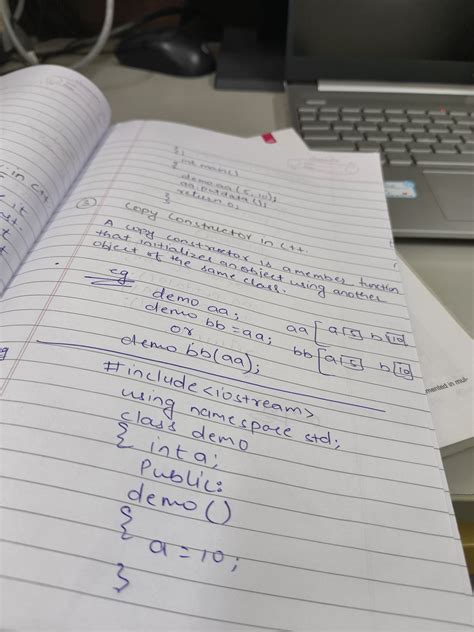 };
int main()
{
demo aa(5,10);
aa.putdata();
return 0;
}
② Copy Constructor in C++.
A copy constructor is a member function
that initializes an object using another
object of the same class.
eg
demo aa; aa [ a [5] b [10]
demo bb = aa;
or
demo bb(aa); bb [ a [5] b [10]
#include<iostream>
using namespace std;
class demo
{ int a;
public:
demo()
{
a = 10;
}
in C++